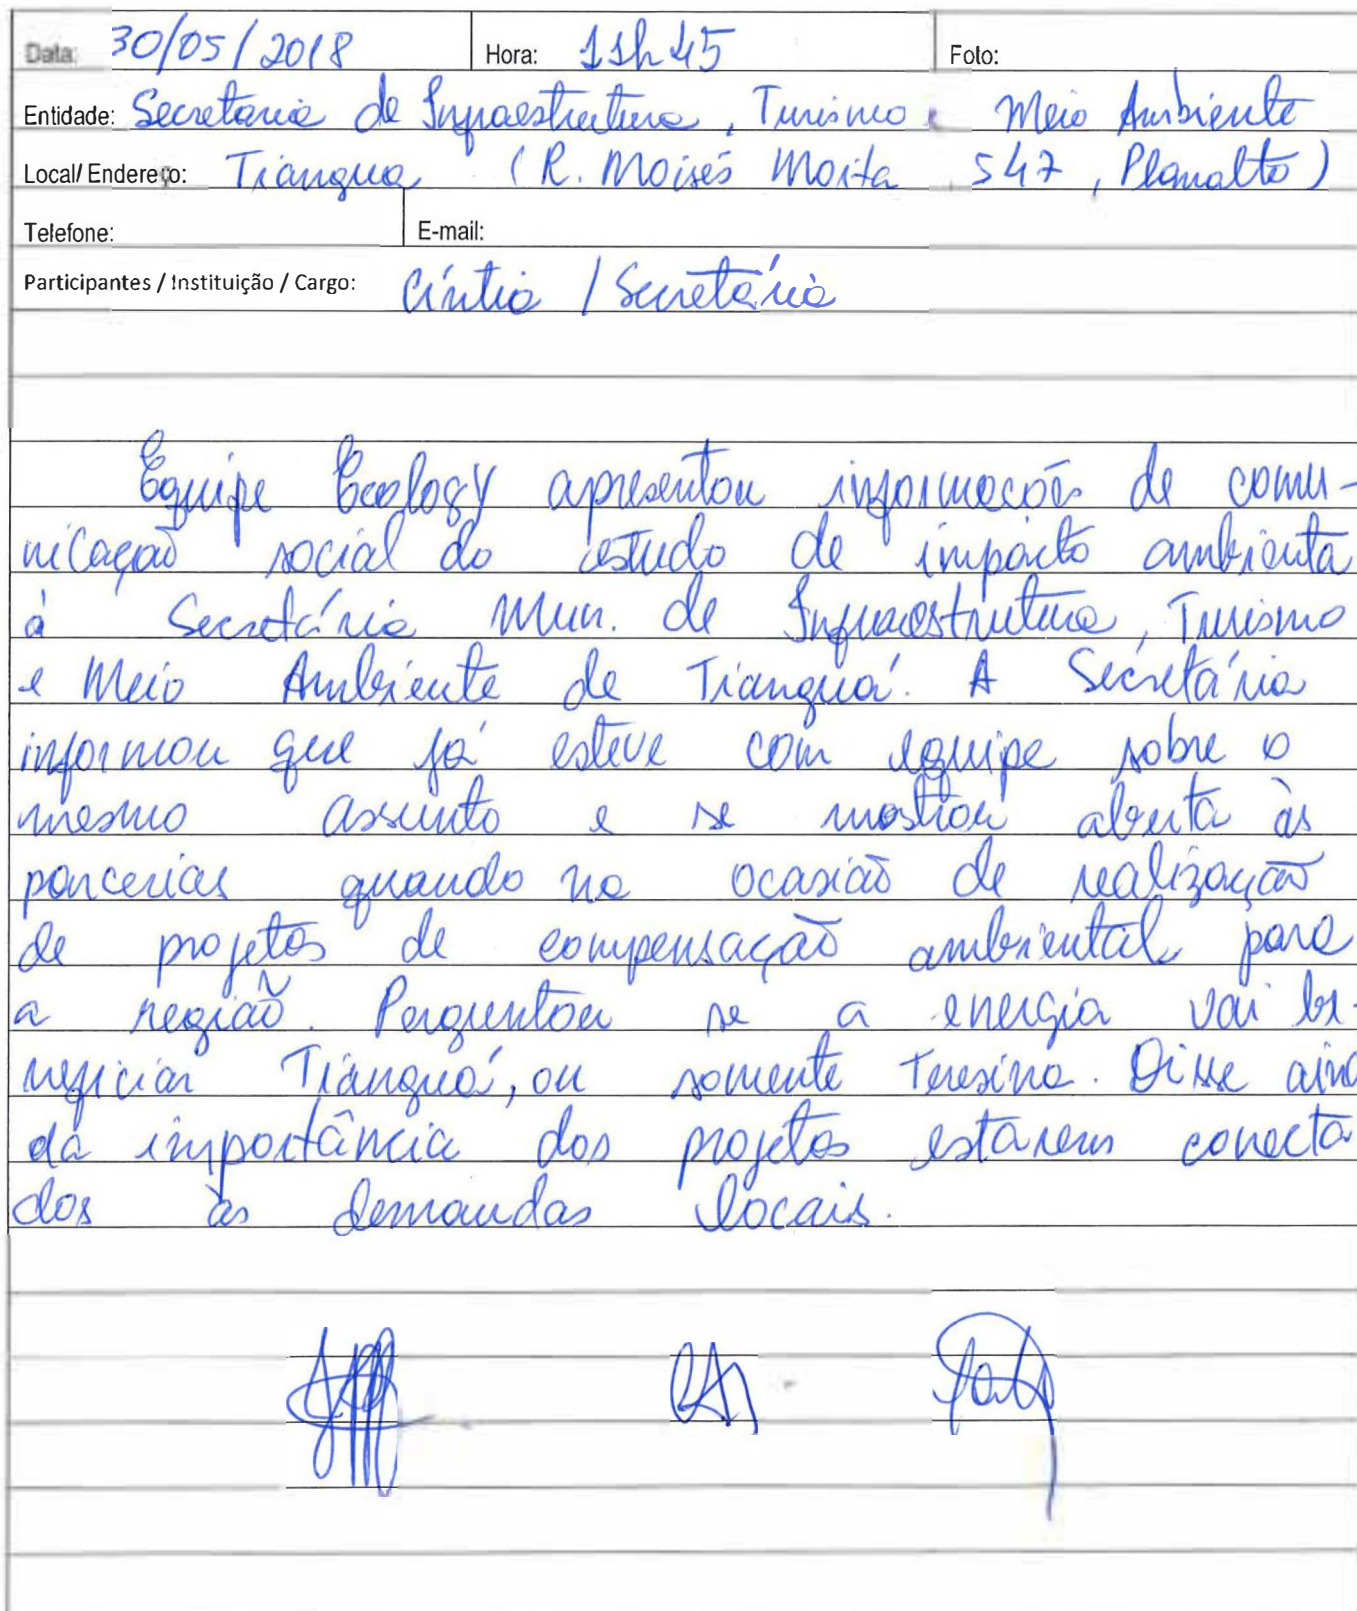 Data: 30/05/2018 Hora: 11h45 Foto:
Entidade: Secretaria de Infraestrutura, Turismo e Meio Ambiente
Local/ Endereço: Tianguá (R. Moisés Moita 547, Planalto)
Telefone: E-mail:
Participantes / Instituição / Cargo: Cíntia / Secretária
Equipe Ecology apresentou informações de comu-
nicação social do estudo de impacto ambienta
à Secretária Mun. de Infraestrutura, Turismo
e Meio Ambiente de Tianguá. A Secretária
informou que já esteve com equipe sobre o
mesmo assunto e se mostrou aberta às
parcerias quando na ocasião de realização
de projetos de compensação ambiental para
a região. Perguntou se a energia vai be-
neficiar Tianguá, ou somente Teresina. Disse ain
da importância dos projetos estarem conecta
dos às demandas locais.